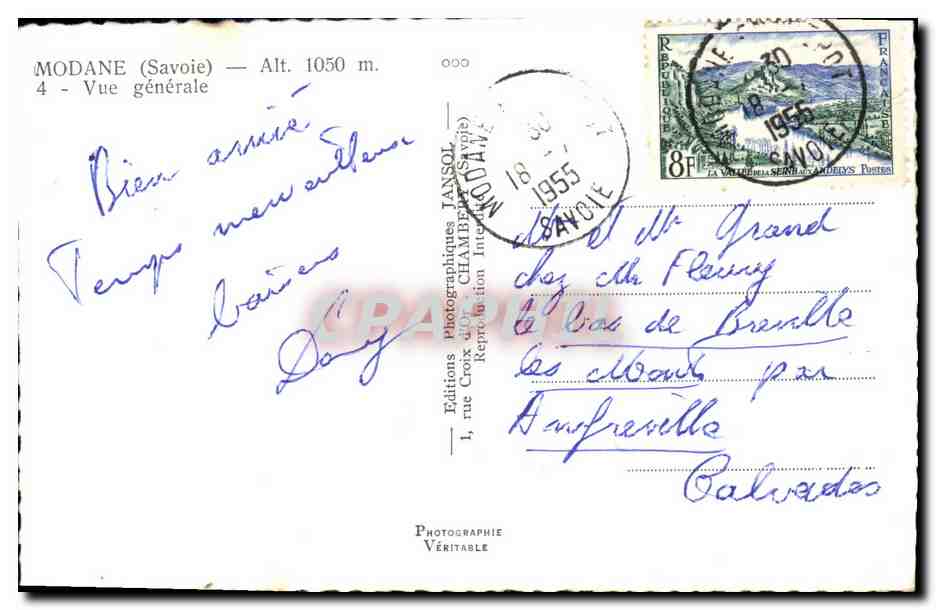 MODANE (Savoie) — Alt. 1050 m.
4 - Vue générale
ooo
Bien arrivé
Temps merveilleux
baisers
Dany
Editions Photographiques JANSOL
1, rue Croix d'Or, CHAMBERY (Savoie)
Reproduction Interdite
MODANE
18
1955
SAVOIE
REPUBLIQUE FRANCAISE
8F
LA VALLEE DE LA SEINE AUX ANDELYS POSTES
30
18
1955
SAVOIE
Mr et Me Grand
chez Me Fleury
le bas de Breville
les Monts par
Amfreville
Calvados
PHOTOGRAPHIE
VÉRITABLE
CPAPHIL